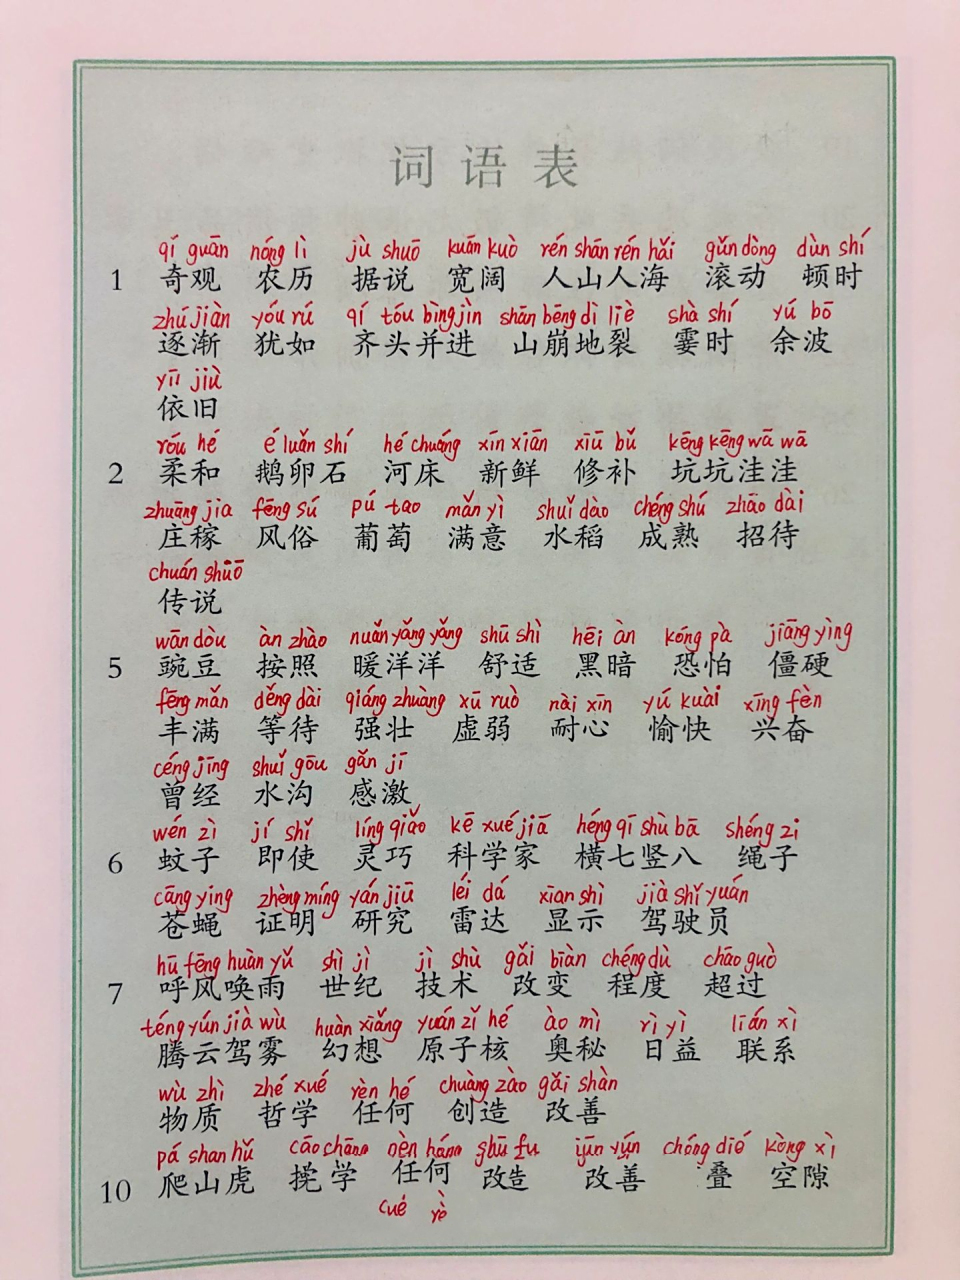 词语表
qí guān nóng lì jù shuō kuān kuò rén shān rén hǎi gǔn dòng dùn shí
1 奇观 农历 据说 宽阔 人山人海 滚动 顿时
zhú jiàn yóu rú qí tóu bìng jìn shān bēng dì liè shà shí yú bō
逐渐 犹如 齐头并进 山崩地裂 霎时 余波
yī jiù
依旧
róu hé é luǎn shí hé chuáng xīn xiān xiū bǔ kēng kēng wā wā
2 柔和 鹅卵石 河床 新鲜 修补 坑坑洼洼
zhuāng jia fēng sú pú tao mǎn yì shuǐ dào chéng shú zhāo dài
庄稼 风俗 葡萄 满意 水稻 成熟 招待
chuán shuō
传说
wān dòu àn zhào nuǎn yáng yáng shū shì hēi àn kǒng pà jiāng yìng
5 豌豆 按照 暖洋洋 舒适 黑暗 恐怕 僵硬
fēng mǎn děng dài qiáng zhuàng xū ruò nài xīn yú kuài xīng fèn
丰满 等待 强壮 虚弱 耐心 愉快 兴奋
céng jīng shuǐ gōu gǎn jī
曾经 水沟 感激
wén zi jí shǐ líng qiǎo kē xué jiā héng qī shù bā shéng zi
6 蚊子 即使 灵巧 科学家 横七竖八 绳子
cāng ying zhèng míng yán jiū léi dá xian shì jià shǐ yuán
苍蝇 证明 研究 雷达 显示 驾驶员
hū fēng huàn yǔ shì jì jì shù gǎi biàn chéng dù chāo guò
7 呼风唤雨 世纪 技术 改变 程度 超过
téng yún jià wù huàn xiǎng yuán zǐ hé ào mì rì yì lián xì
腾云驾雾 幻想 原子核 奥秘 日益 联系
wù zhì zhé xué rèn hé chuàng zào gǎi shàn
物质 哲学 任何 创造 改善
pá shan hǔ chóng dié kòng xì
10 爬山虎 学 任何 改造 改善 叠 空隙